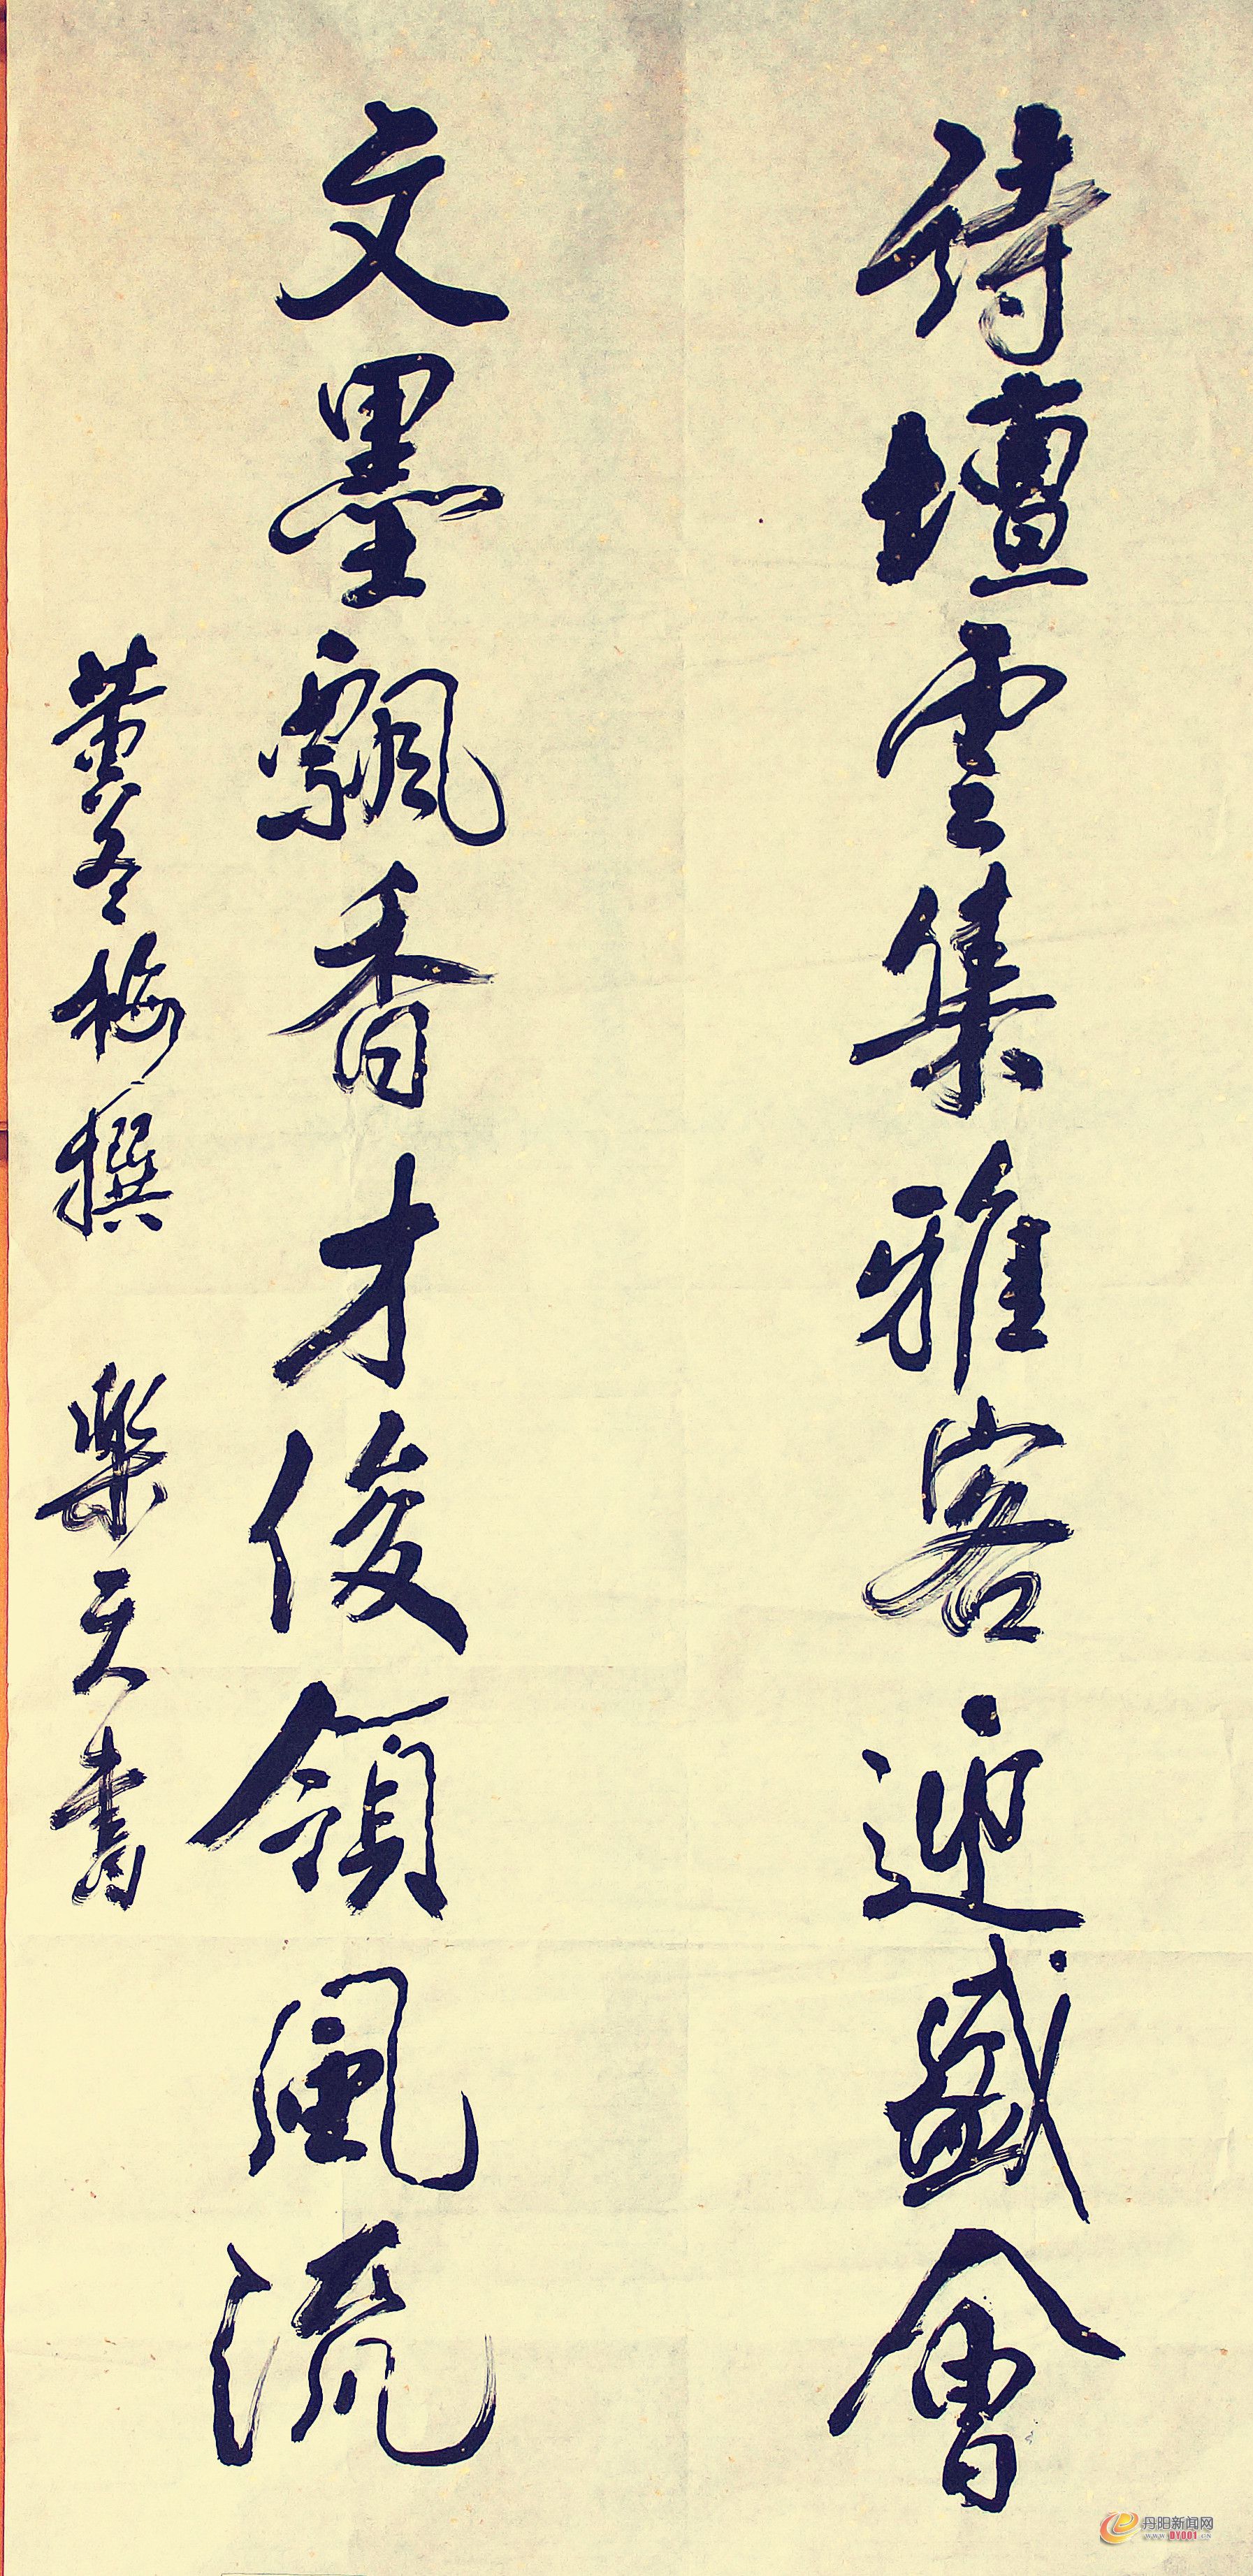 诗壇雲集雅客迎盛會
文墨飄香才俊領風流
董冬梅撰 樂天書
丹阳新闻网
WWW.DY001.CN